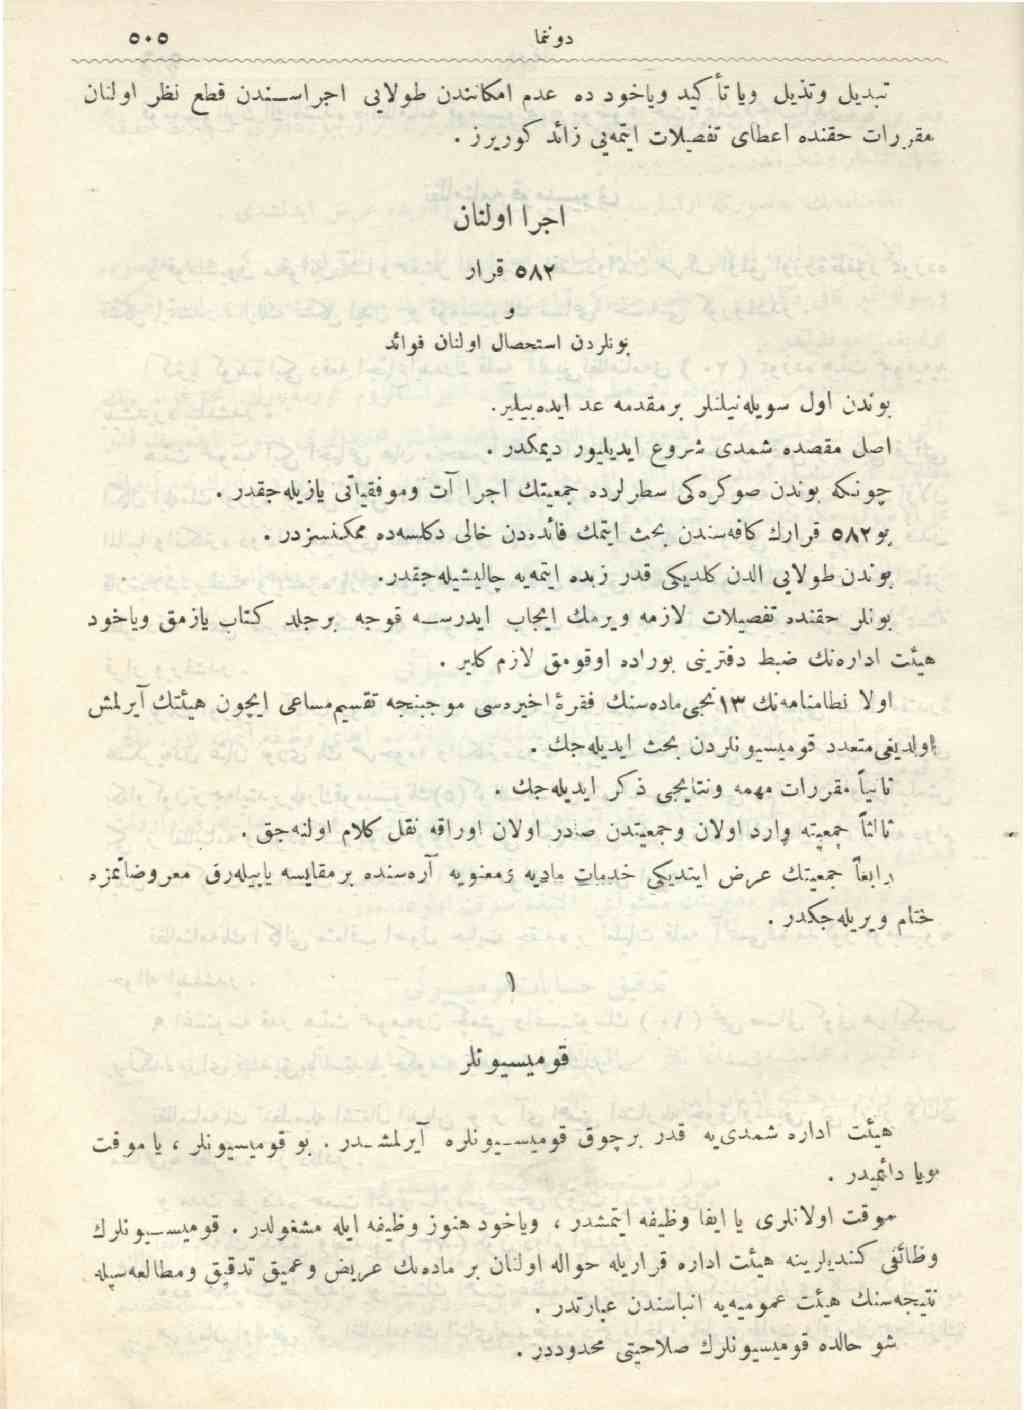 دوننما ٥٠٥
تبديل وتذيل ويا تأكيد وياخود ده عدم امكانندن طولايى اجراسندن قطع نظر اولنان
مقررات حقنده اعطاى تفصيلات ايتمه‌يى زائد كوريرز .
اجرا اولنان
٥٨٢ قرار
و
بونلردن استحصال اولنان فوائد
بوندن اول سويله‌نيلنلر برمقدمه عد ايده‌بيلير.
اصل مقصده شمدى شروع ايديليور ديمكدر .
چونكه بوندن صوكره‌كى سطرلرده جمعيتك اجرا آت وموفقياتى يازيله‌جقدر .
بو٥٨٢ قرارك كافه‌سندن بحث ايتمك فائده‌دن خالى دكلسه‌ده ممكنسزدر .
بوندن طولايى الدن كلديكى قدر زبده ايتمه‌يه چاليشيله‌جقدر.
بونلر حقنده تفصيلات لازمه ويرمك ايجاب ايدرسه قوجه برجلد كتاب يازمق وياخود
هيئت اداره‌نك ضبط دفترينى بوراده اوقومق لازم كلير .
اولا نظامنامه‌نك ١٣نجى‌ماده‌سنك فقرۀ اخيره‌سى موجبنجه تقسيم‌مساعى ايچون هيئتك آيرلمش
اولديغى‌متعدد قوميسيونلردن بحث ايديله‌جك .
ثانياً مقررات مهمه ونتايجى ذكر ايديله‌جك .
ثالثاً جمعيته وارد اولان وجمعيتدن صادر اولان اوراقه نقل كلام اولنه‌جق .
رابعاً جمعيتك عرض ايتديكى خدمات ماديه ومعنويه آره‌سنده برمقايسه ياپيله‌رق معروضاتمزه
ختام ويريله‌جكدر .
١
قوميسيونلر
هيئت اداره شمدى‌يه قدر برچوق قوميسيونلره آيرلمشدر . بو قوميسيونلر ، يا موقت
ويا دائميدر .
موقت اولانلرى يا ايفا وظيفه ايتمشدر ، وياخود هنوز وظيفه ايله مشغولدر . قوميسيونلرك
وظائفى كنديلرينه هيئت اداره قراريله حواله اولنان بر ماده‌نك عريض وعميق تدقيق ومطالعه‌سيله
نتيجه‌سنك هيئت عموميه‌يه انباسندن عبارتدر .
شو حالده قوميسيونلرك صلاحيتى محدوددر .